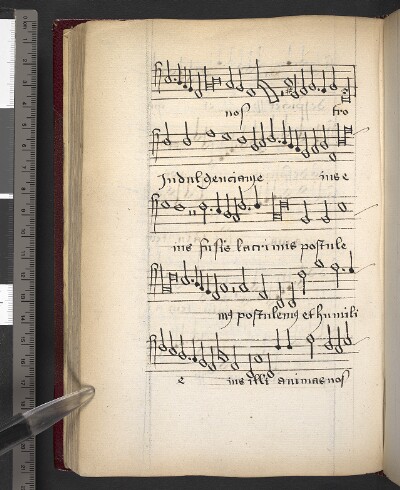 nos tro
Indulgenciam eius e
ius fusis lacrimis postule
mus postulemus et humili
e ius illi animas nos